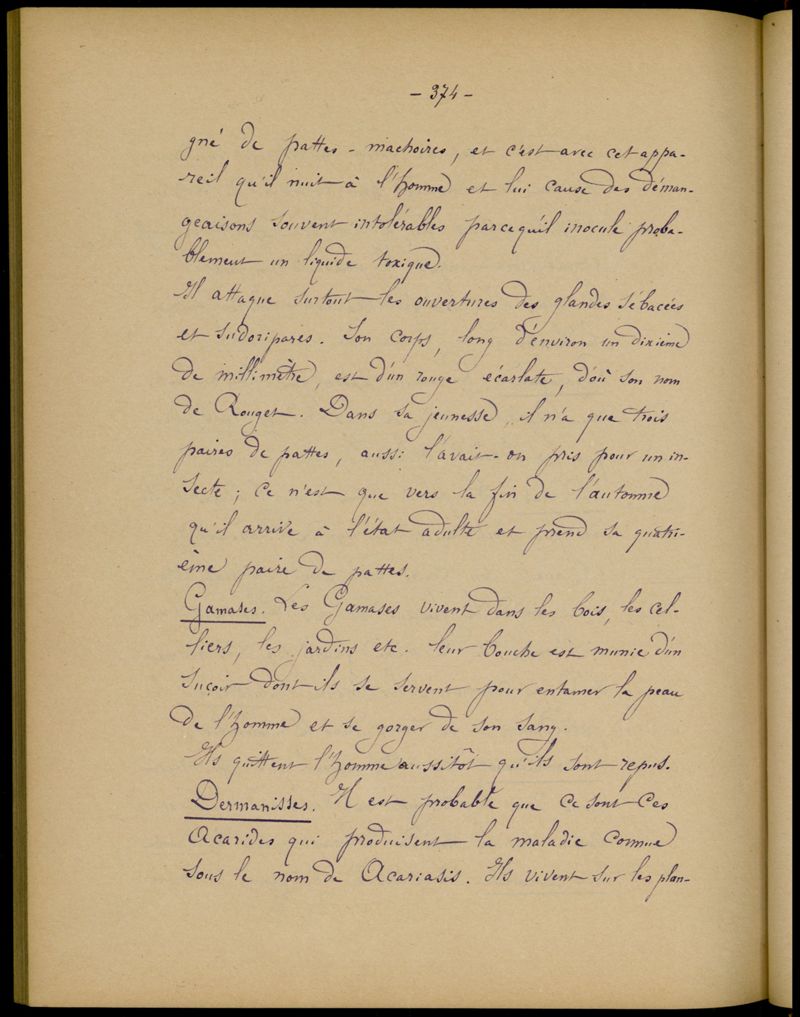 - 374 -
gné de pattes - machoires, et c'est avec cet appa-
reil qu'il nuit à l'homme et lui cause des déman-
geaisons souvent intolérables parcequ'il inocule proba-
blement un liquide toxique.
Il attaque surtout les ouvertures des glandes sébacées
et sudoripares. Son corps, long d'environ un dixième
de millimètre, est d'un rouge écarlate, d'où son nom
de Rouget. Dans sa jeunesse, il n'a que trois
paires de pattes, aussi l'avait-on pris pour un in-
secte ; ce n'est que vers la fin de l'automne
qu'il arrive à l'état adulte et prend sa quatri-
ème paire de pattes.
Gamases. Les Gamases vivent dans les bois, les cel-
liers, les jardins etc. leur bouche est munie d'un
suçoir dont ils se servent pour entamer la peau
de l'homme et se gorger de son sang.
Ils quittent l'homme aussitôt qu'ils sont repus.
Dermanisses. Il est probable que ce sont ces
Acarides qui produisent la maladie connue
sous le nom de Acariasis. Ils vivent sur les plan-